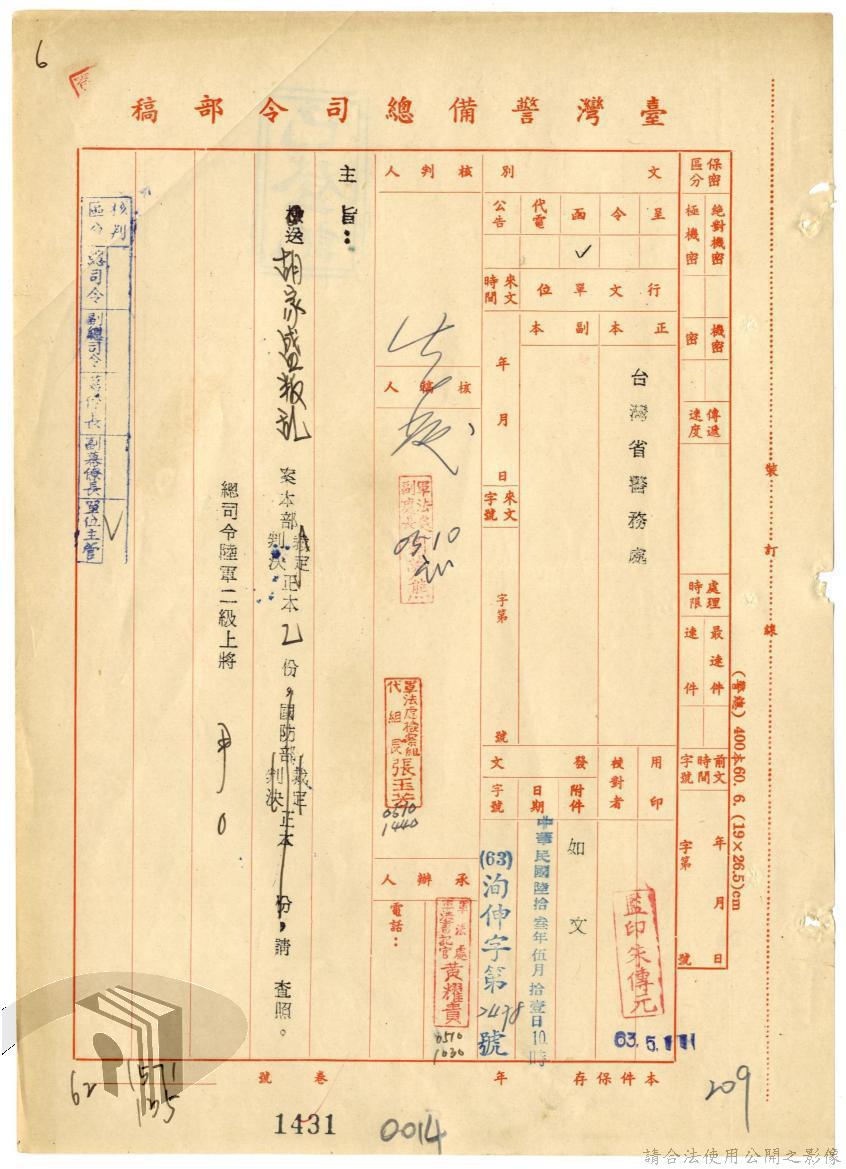 6
臺灣警備總司令部稿
保密區分
絕對機密
極機密
機密
密
傳遞速度
處理時限
最速件
速件
前文時間字號
年 月 日
字第 號
文別
呈
令
函
✓
代電
公告
行文單位
正本
副本
台灣省警務處
來文時間
年 月 日
來文字號
字第 號
用印
監印朱傳元
63.5.11
校對者
發文
附件
如文
日期
中華民國陸拾叁年伍月拾壹日10時
字號
(63)洵伸字第2498號
核判人
核稿人
軍法處副處長
0510
軍法處檢察組代組長張玉芳
0510
1440
承辦人
軍法處
書記官黃耀貴
0510
1030
電話：
主旨：
檢送胡家盛叛亂案本部裁定判決正本乙份，國防部裁定判決正本 份，請 查照。
總司令陸軍二級上將 尹○
核判區分
總司令
副總司令
幕僚長
副幕僚長
單位主管
✓
裝訂線
(警總) 400本60.6.(19×26.5)cm
本件保存 年
卷 號
62
1571
1431
0014
209
請合法使用公開之影像